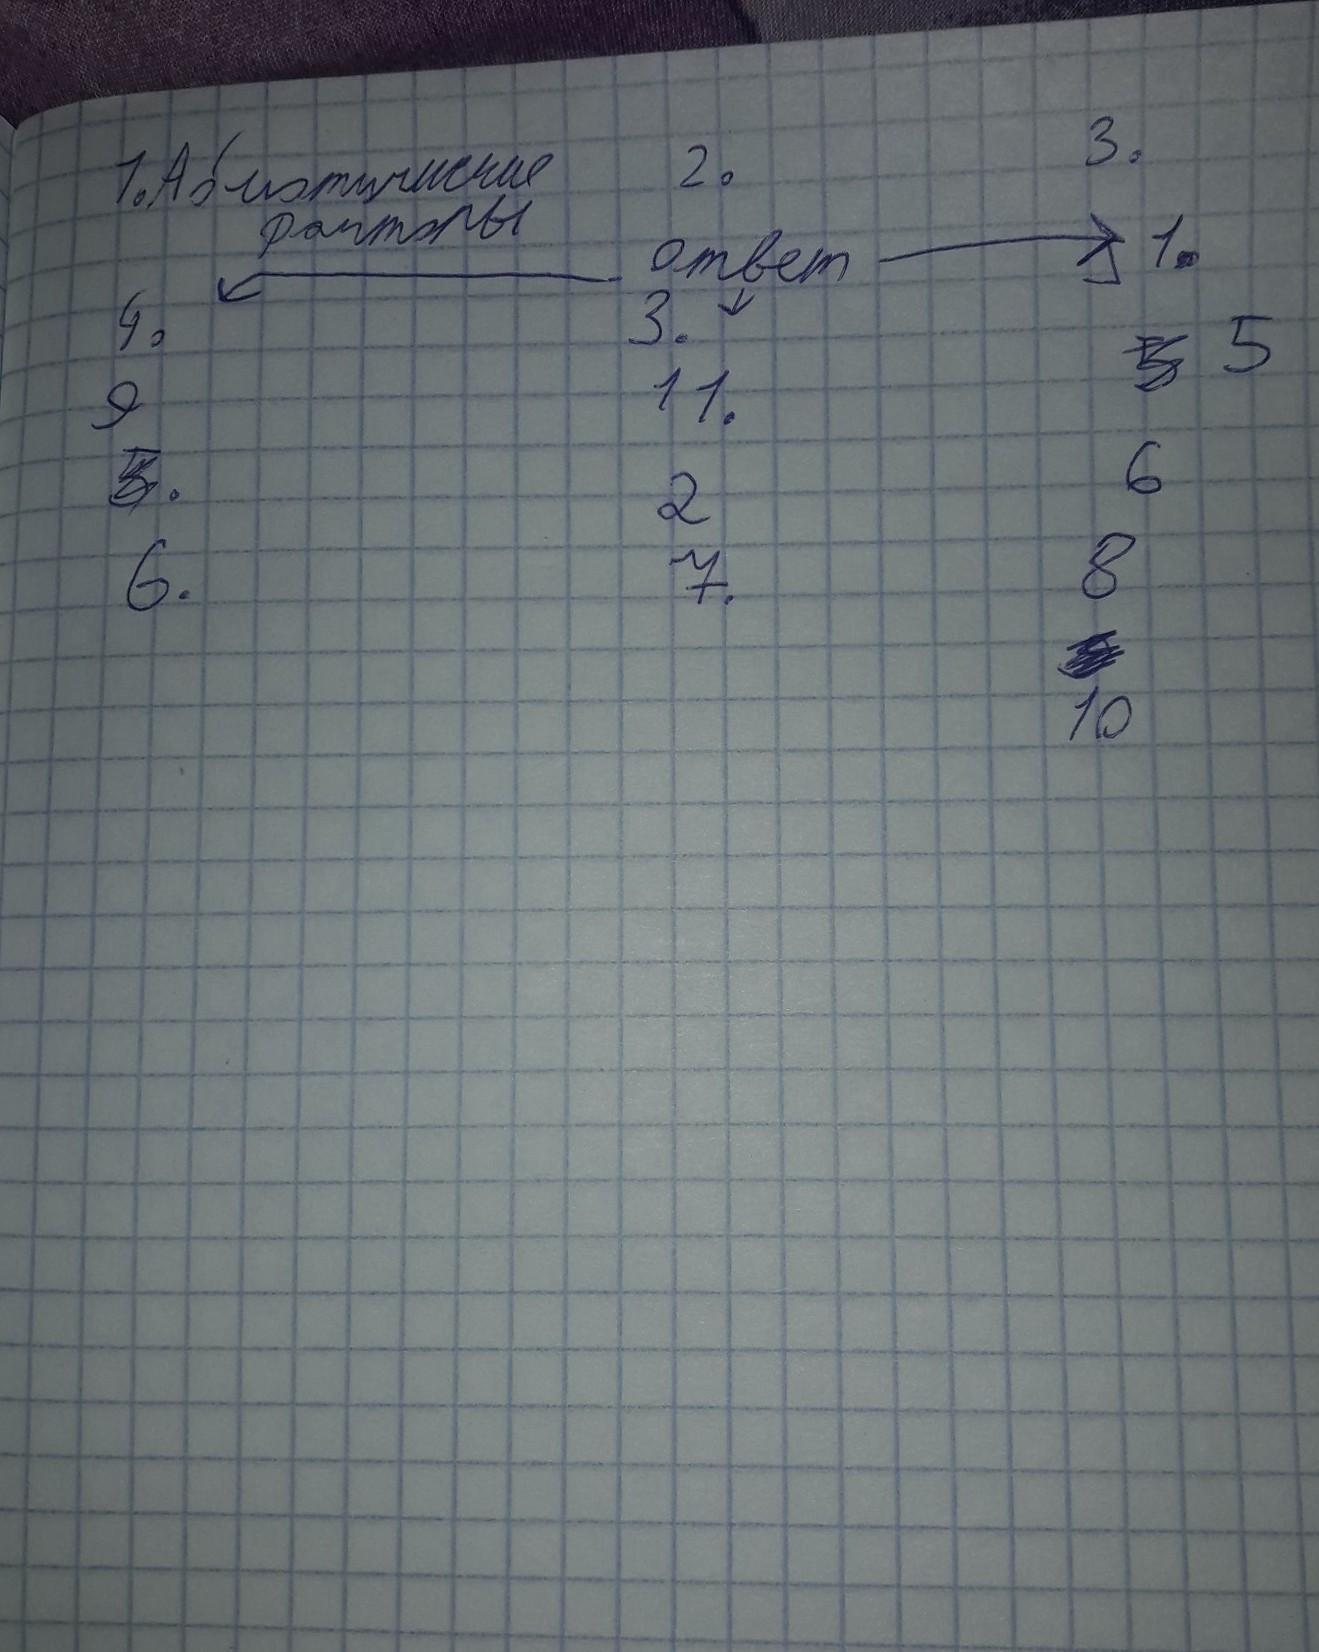 1. Абиотические 2. 3.
факторы
ответ 1.
4. 3. 5
9 11.
6
2
6. 7. 8
10